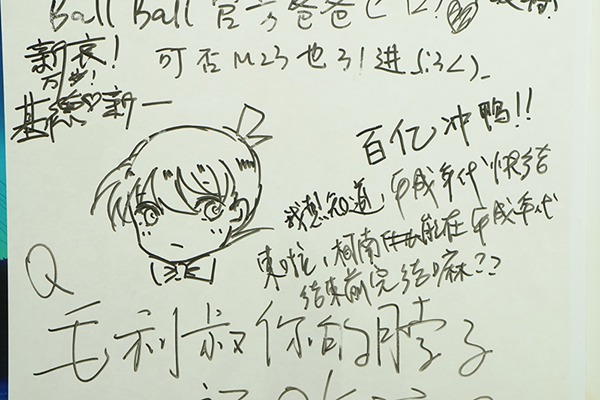 Ball Ball 官方爸爸
新哀！
万岁！
可否M23也引进
基德♡新一
百亿冲鸭!!
我想知道，平成年代快结
束啦，柯南能在平成年代
结束前完结嘛??
Q
毛利叔你的脖子